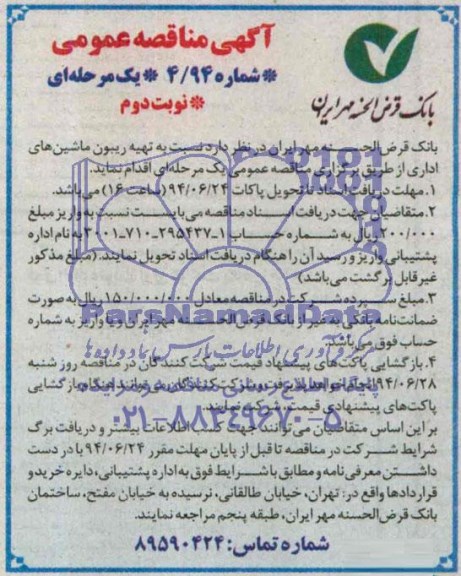 آگهی مناقصه عمومی
*شماره ۴/۹۴ *یک مرحله‌ای
*نوبت دوم
بانک قرض‌الحسنه مهر ایران
بانک قرض‌الحسنه مهر ایران در نظر دارد نسبت به تهیه ریبون ماشین‌های
اداری از طریق برگزاری مناقصه عمومی یک مرحله‌ای اقدام نماید.
۱. مهلت دریافت اسناد تا تحویل پاکات ۹۴/۰۶/۲۴ (ساعت ۱۶) می‌باشد.
۲. متقاضیان جهت دریافت اسناد مناقصه می‌بایست نسبت به واریز مبلغ
۲۰۰/۰۰۰ ریال به شماره حساب ۱-۲۹۵۴۳۷-۷۱۰-۳۰۰۱ به نام اداره
پشتیبانی واریز و رسید آن را هنگام دریافت اسناد تحویل نمایند. (مبلغ مذکور
غیر قابل برگشت می‌باشد)
۳. مبلغ سپرده شرکت در مناقصه معادل ۱۵۰/۰۰۰/۰۰۰ ریال به صورت
ضمانت‌نامه بانکی به غیر از بانک قرض‌الحسنه مهر ایران و یا واریز به شماره
حساب فوق می‌باشد.
۴. بازگشایی پاکت‌های پیشنهاد قیمت شرکت کنندگان در مناقصه روز شنبه
۹۴/۰۶/۲۸ انجام خواهد پذیرفت و شرکت کنندگان می‌توانند هنگام بازگشایی
پاکت‌های پیشنهادی قیمت شرکت نمایند.
بر این اساس متقاضیان می‌توانند جهت کسب اطلاعات بیشتر و دریافت برگ
شرایط شرکت در مناقصه تا قبل از پایان مهلت مقرر ۹۴/۰۶/۲۴ با در دست
داشتن معرفی‌نامه و مطابق با شرایط فوق به اداره پشتیبانی، دایره خرید و
قراردادها واقع در: تهران، خیابان طالقانی، نرسیده به خیابان مفتح، ساختمان
بانک قرض‌الحسنه مهر ایران، طبقه پنجم مراجعه نمایند.
شماره تماس: ۸۹۵۹۰۴۲۴
ParsNamadData
۰۲۱-۸۸۳۴۹۶۷۰-۵